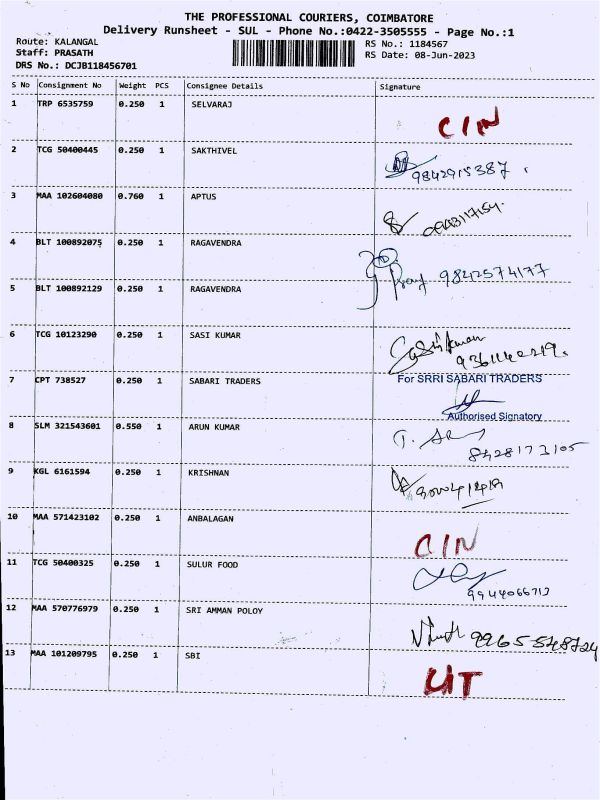 THE PROFESSIONAL COURIERS, COIMBATORE
Delivery Runsheet - SUL - Phone No.:0422-3505555 - Page No.:1
Route: KALANGAL RS No.: 1184567
Staff: PRASATH RS Date: 08-Jun-2023
DRS No.: DCJB118456701
S No Consignment No Weight PCS Consignee Details Signature
1 TRP 6535759 0.250 1 SELVARAJ CIN
2 TCG 50400445 0.250 1 SAKTHIVEL 9842915387
3 MAA 102604080 0.760 1 APTUS
4 BLT 100892075 0.250 1 RAGAVENDRA 9842574177
5 BLT 100892129 0.250 1 RAGAVENDRA
6 TCG 10123290 0.250 1 SASI KUMAR
7 CPT 738527 0.250 1 SABARI TRADERS For SRRI SABARI TRADERS
Authorised Signatory
8 SLM 321543601 0.550 1 ARUN KUMAR 8428173105
9 KGL 6161594 0.250 1 KRISHNAN
10 MAA 571423102 0.250 1 ANBALAGAN CIN
11 TCG 50400325 0.250 1 SULUR FOOD 9944066713
12 MAA 570776979 0.250 1 SRI AMMAN POLOY 9965548724
13 MAA 101209795 0.250 1 SBI